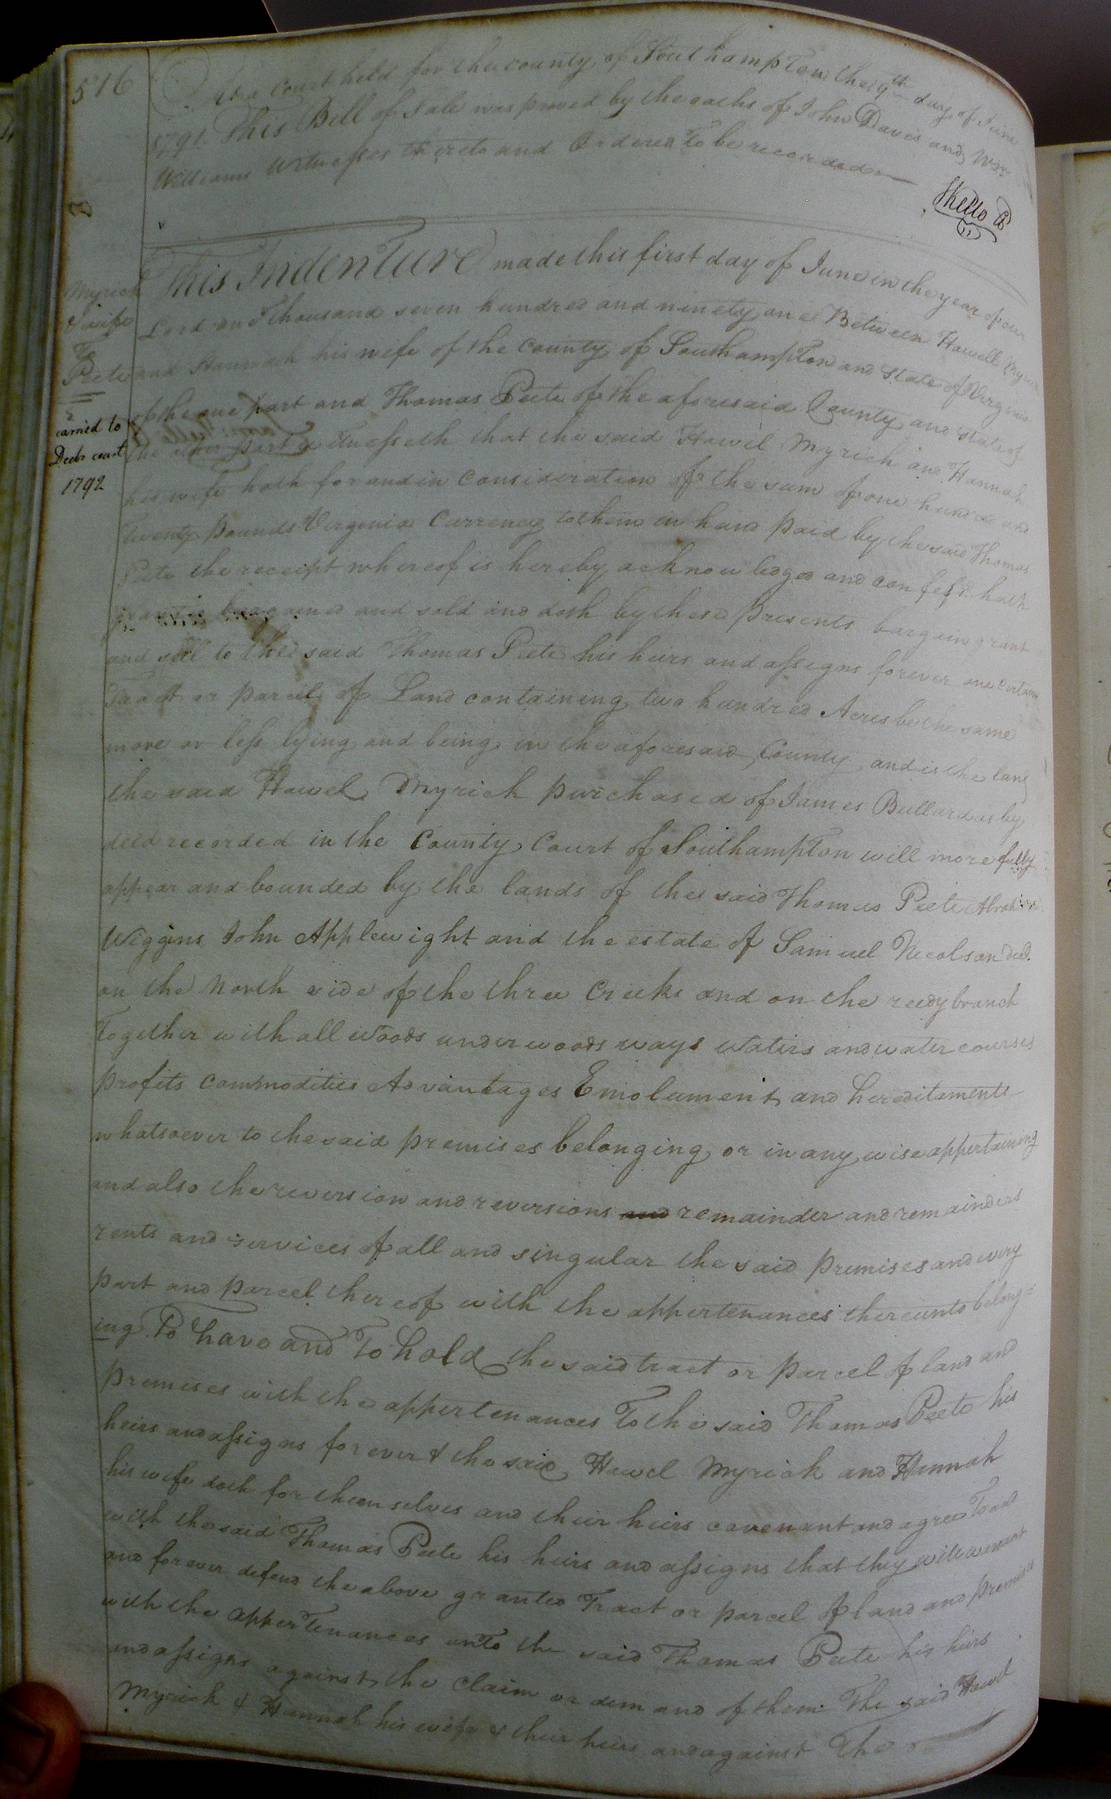 516
At a Court held for the county of Southampton the 9th day of June
1791. This Bill of Sale was proved by the oaths of John Davis and Wm
Williams Witnesses thereto and Ordered to be recorded
Myrick
& wife
To
Peete
carried to
Deeb court
1792
This Indenture made this first day of June in the year of our
Lord one Thousand seven hundred and ninety one Between Howell Myrick
and Hannah his wife of the County of Southampton and State of Virginia
of the one part and Thomas Peete of the aforesaid County and State of
the other part witnesseth that the said Howel Myrick and Hannah
his wife hath for and in consideration of the sum of one hundred and
Twenty pounds Virginia Currency to them in hand paid by the said Thomas
Peete the receipt whereof is hereby acknowledged and confess'd hath
bargained and sold and doth by these presents bargain grant
and sell to the said Thomas Peete his heirs and assigns forever one certain
Tract or parcel of Land containing two hundred Acres be the same
more or less lying and being in the aforesaid County and is the land
the said Howel Myrick purchased of James Bullard as by
deed recorded in the County Court of Southampton will more fully
appear and bounded by the lands of the said Thomas Peete Abraham
Wiggins John Applewight and the estate of Samuel Nicolson decd.
on the North side of the three Creeks and on the reedy branch
Together with all Woods under woods ways Waters and water courses
profits commodities Advantages Emolument and hereditaments
whatsoever to the said premises belonging or in any wise appertaining
and also the reversion and reversions and remainder and remainders
rents and services of all and singular the said premises and every
part and parcel thereof with the appertenances thereunto belong=
ing To have and To hold the said tract or parcel of land and
premises with the appertenances To the said Thomas Peete his
heirs and assigns forever & the said Howel Myrick and Hannah
his wife doth for themselves and their heirs covenant and agree To and
with the said Thomas Peete his heirs and assigns that they will warrant
and forever defend the above granted Tract or parcel of land and premises
with the appertenances unto the said Thomas Peete his heirs
and assigns against the claim or demand of them The said Howel
Myrick & Hannah his wife & their heirs and against The